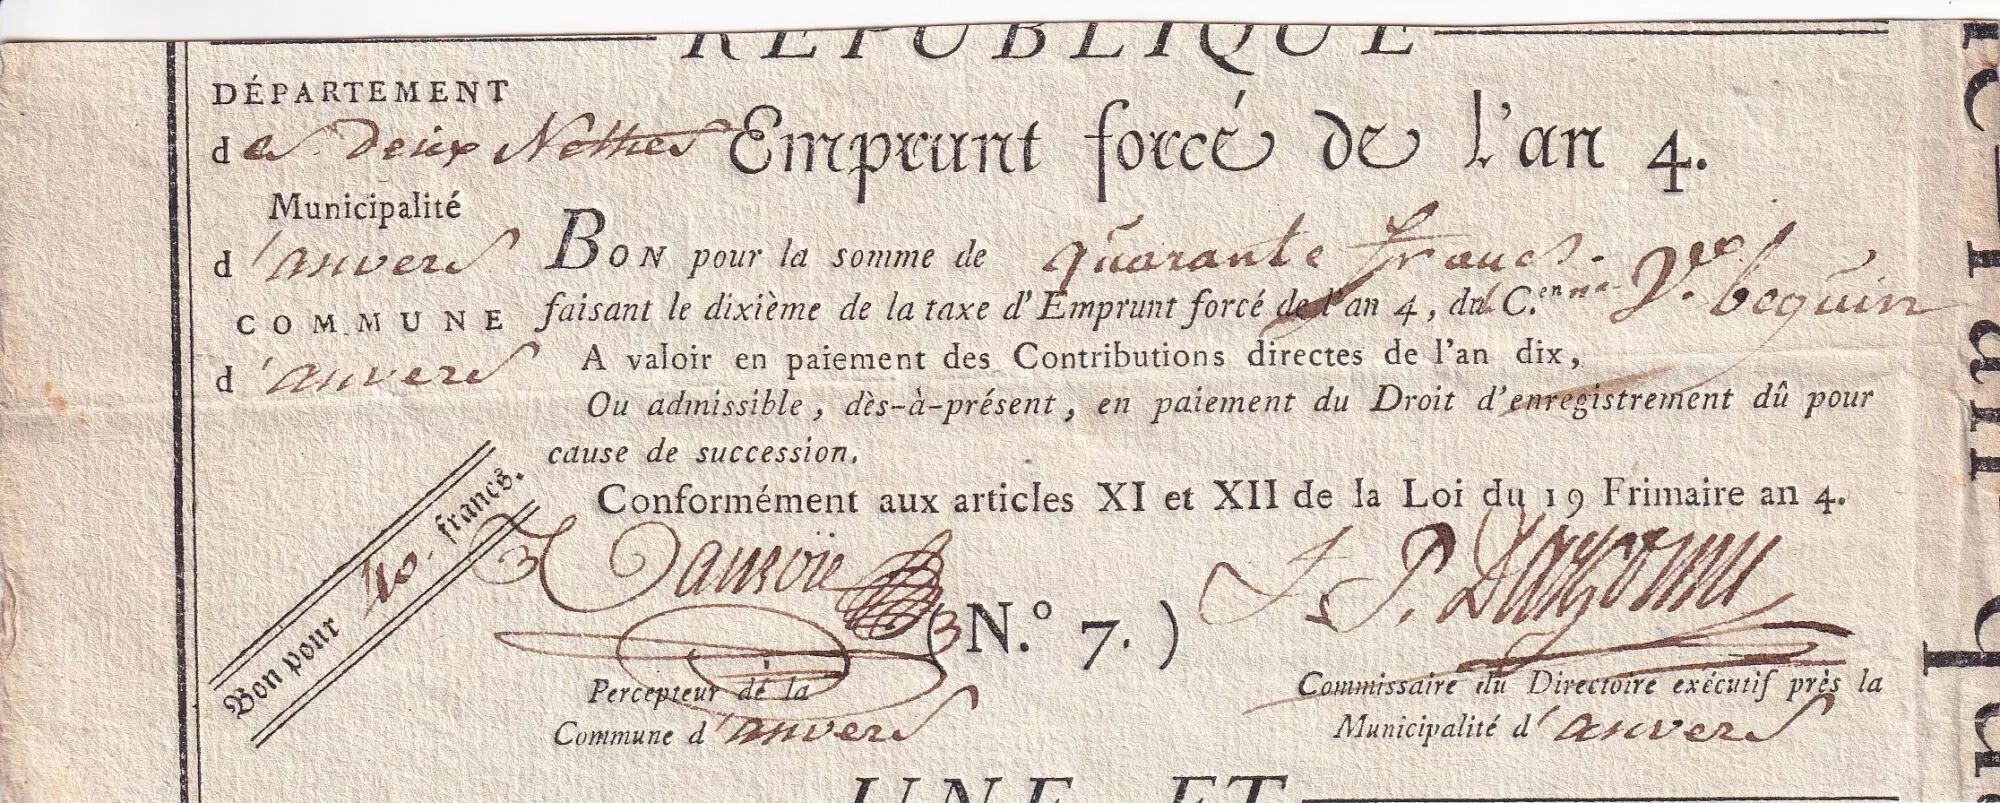 RÉPUBLIQUE
DÉPARTEMENT
des deux Nethes
Emprunt forcé de l'an 4.
Municipalité
d'anvers
BON pour la somme de quarante francs.
faisant le dixième de la taxe d'Emprunt forcé de l'an 4, du C.enne Ve. beguin
COMMUNE
d'anvers
A valoir en paiement des Contributions directes de l'an dix,
Ou admissible, dès-à-présent, en paiement du Droit d'enregistrement dû pour
cause de succession.
Conformément aux articles XI et XII de la Loi du 19 Frimaire an 4.
Bon pour 40. francs.
(N.º 7.)
J. P.
Percepteur de la
Commune d'anvers
Commissaire du Directoire exécutif près la
Municipalité d'anvers
UNE ET